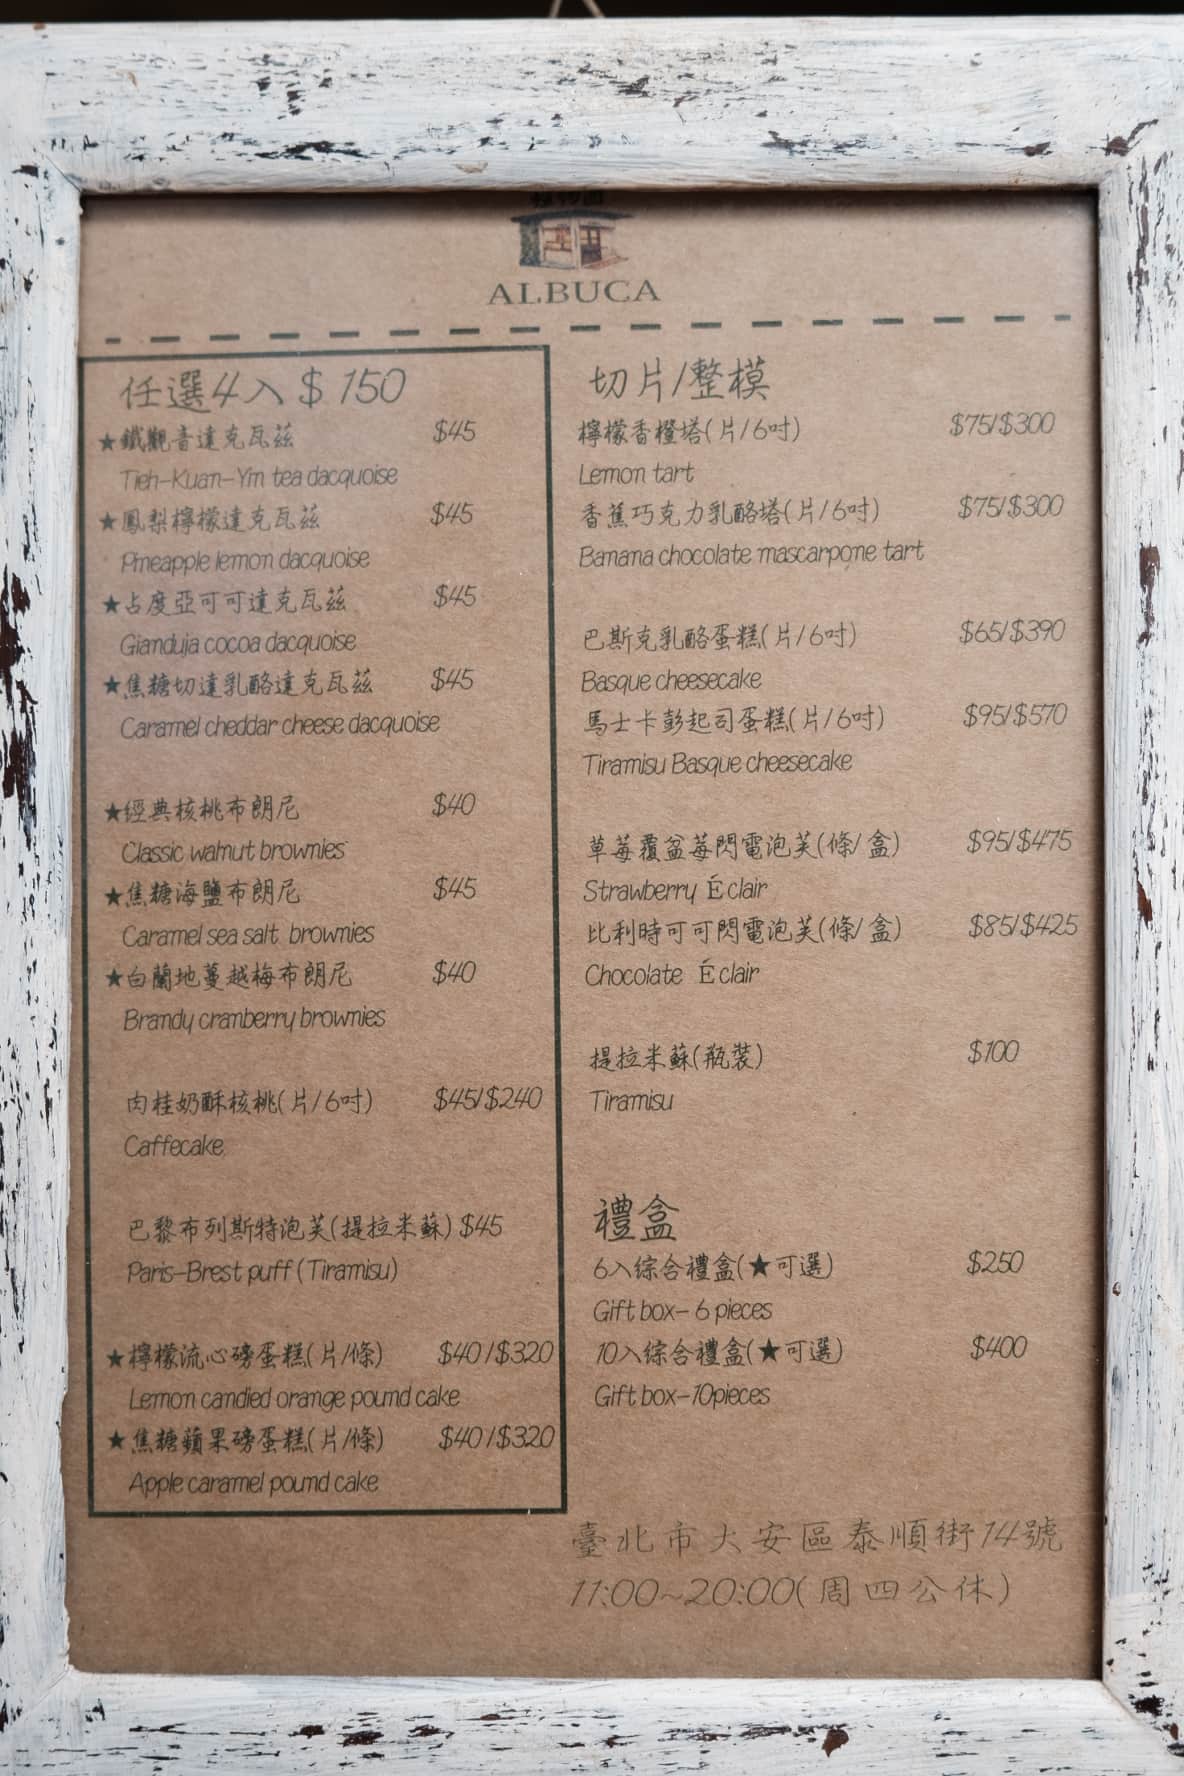 ALBUCA
任選4入$150
★鐵觀音達克瓦茲 $45
Tieh-Kuan-Yin tea dacquoise
★鳳梨檸檬達克瓦茲 $45
Pineapple lemon dacquoise
★占度亞可可達克瓦茲 $45
Gianduja cocoa dacquoise
★焦糖切達乳酪達克瓦茲 $45
Caramel cheddar cheese dacquoise
★經典核桃布朗尼 $40
Classic walnut brownies
★焦糖海鹽布朗尼 $45
Caramel sea salt brownies
★白蘭地蔓越梅布朗尼 $40
Brandy cranberry brownies
肉桂奶酥核桃(片/6吋) $45/$240
Caffecake
巴黎布列斯特泡芙(提拉米蘇) $45
Paris-Brest puff (Tiramisu)
★檸檬流心磅蛋糕(片/條) $40/$320
Lemon candied orange pound cake
★焦糖蘋果磅蛋糕(片/條) $40/$320
Apple caramel pound cake
切片/整模
檸檬香橙塔(片/6吋) $75/$300
Lemon tart
香蕉巧克力乳酪塔(片/6吋) $75/$300
Banana chocolate mascarpone tart
巴斯克乳酪蛋糕(片/6吋) $65/$390
Basque cheesecake
馬士卡彭起司蛋糕(片/6吋) $95/$570
Tiramisu Basque cheesecake
草莓覆盆莓閃電泡芙(條/盒) $95/$475
Strawberry Éclair
比利時可可閃電泡芙(條/盒) $85/$425
Chocolate Éclair
提拉米蘇(瓶裝) $100
Tiramisu
禮盒
6入综合禮盒(★可選) $250
Gift box- 6 pieces
10入综合禮盒(★可選) $400
Gift box-10pieces
臺北市大安區泰順街14號
11:00~20:00(周四公休)